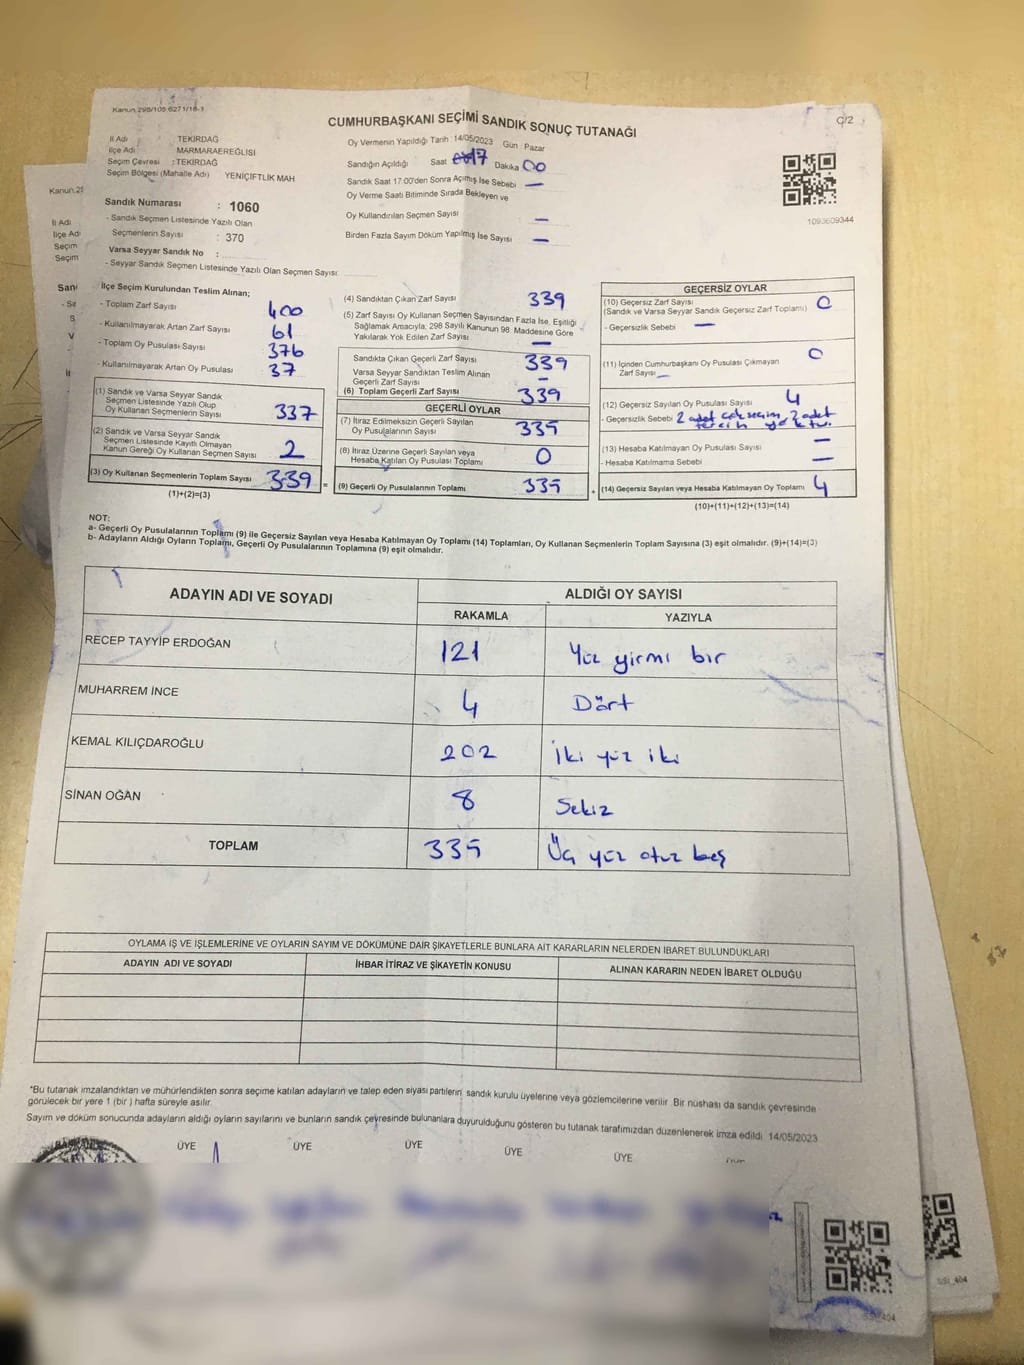 Kanun 298/105 6271/18-1
CUMHURBAŞKANI SEÇİMİ SANDIK SONUÇ TUTANAĞI
C/2
İl Adı : TEKİRDAĞ
İlçe Adı : MARMARAEREĞLİSİ
Seçim Çevresi : TEKİRDAĞ
Seçim Bölgesi (Mahalle Adı) YENİÇİFTLİK MAH
Sandık Numarası : 1060
- Sandık Seçmen Listesinde Yazılı Olan
Seçmenlerin Sayısı : 370
Varsa Seyyar Sandık No :
- Seyyar Sandık Seçmen Listesinde Yazılı Olan Seçmen Sayısı:
Oy Vermenin Yapıldığı Tarih 14/05/2023 Gün Pazar
Sandığın Açıldığı Saat 17 Dakika 00
Sandık Saat 17:00'den Sonra Açılmış İse Sebebi —
Oy Verme Saati Bitiminde Sırada Bekleyen ve
Oy Kullandırılan Seçmen Sayısı —
Birden Fazla Sayım Döküm Yapılmış İse Sayısı —
1093609344
İlçe Seçim Kurulundan Teslim Alınan;
- Toplam Zarf Sayısı 400
- Kullanılmayarak Artan Zarf Sayısı 61
- Toplam Oy Pusulası Sayısı 376
- Kullanılmayarak Artan Oy Pusulası 37
(1) Sandık ve Varsa Seyyar Sandık
Seçmen Listesinde Yazılı Olup
Oy Kullanan Seçmenlerin Sayısı 337
(2) Sandık ve Varsa Seyyar Sandık
Seçmen Listesinde Kayıtlı Olmayan
Kanun Gereği Oy Kullanan Seçmen Sayısı 2
(3) Oy Kullanan Seçmenlerin Toplam Sayısı 339
(1)+(2)=(3)
(4) Sandıktan Çıkan Zarf Sayısı 339
(5) Zarf Sayısı Oy Kullanan Seçmen Sayısından Fazla İse, Eşitliği
Sağlamak Amacıyla, 298 Sayılı Kanunun 98. Maddesine Göre
Yakılarak Yok Edilen Zarf Sayısı —
Sandıkta Çıkan Geçerli Zarf Sayısı 339
Varsa Seyyar Sandıktan Teslim Alınan
Geçerli Zarf Sayısı —
(6) Toplam Geçerli Zarf Sayısı 339
GEÇERLİ OYLAR
(7) İtiraz Edilmeksizin Geçerli Sayılan
Oy Pusulalarının Sayısı 335
(8) İtiraz Üzerine Geçerli Sayılan veya
Hesaba Katılan Oy Pusulası Toplamı 0
= (9) Geçerli Oy Pusulalarının Toplamı 335
GEÇERSİZ OYLAR
(10) Geçersiz Zarf Sayısı 0
(Sandık ve Varsa Seyyar Sandık Geçersiz Zarf Toplamı)
- Geçersizlik Sebebi —
(11) İçinden Cumhurbaşkanı Oy Pusulası Çıkmayan 0
Zarf Sayısı —
(12) Geçersiz Sayılan Oy Pusulası Sayısı 4
- Geçersizlik Sebebi 2 adet çok seçim, 2 adet
tercih yoktur.
(13) Hesaba Katılmayan Oy Pusulası Sayısı —
- Hesaba Katılmama Sebebi —
+ (14) Geçersiz Sayılan veya Hesaba Katılmayan Oy Toplamı 4
(10)+(11)+(12)+(13)=(14)
NOT:
a- Geçerli Oy Pusulalarının Toplamı (9) ile Geçersiz Sayılan veya Hesaba Katılmayan Oy Toplamı (14) Toplamları, Oy Kullanan Seçmenlerin Toplam Sayısına (3) eşit olmalıdır. (9)+(14)=(3)
b- Adayların Aldığı Oyların Toplamı, Geçerli Oy Pusulalarının Toplamına (9) eşit olmalıdır.
ADAYIN ADI VE SOYADI
ALDIĞI OY SAYISI
RAKAMLA YAZIYLA
RECEP TAYYİP ERDOĞAN 121 Yüz yirmi bir
MUHARREM İNCE 4 Dört
KEMAL KILIÇDAROĞLU 202 İki yüz iki
SİNAN OĞAN 8 Sekiz
TOPLAM 335 Üç yüz otuz beş
OYLAMA İŞ VE İŞLEMLERİNE VE OYLARIN SAYIM VE DÖKÜMÜNE DAİR ŞİKAYETLERLE BUNLARA AİT KARARLARIN NELERDEN İBARET BULUNDUKLARI
ADAYIN ADI VE SOYADI İHBAR İTİRAZ VE ŞİKAYETİN KONUSU ALINAN KARARIN NEDEN İBARET OLDUĞU
*Bu tutanak imzalandıktan ve mühürlendikten sonra seçime katılan adayların ve talep eden siyasi partilerin sandık kurulu üyelerine veya gözlemcilerine verilir. Bir nüshası da sandık çevresinde
görülecek bir yere 1 (bir) hafta süreyle asılır.
Sayım ve döküm sonucunda adayların aldığı oyların sayılarını ve bunların sandık çevresinde bulunanlara duyurulduğunu gösteren bu tutanak tarafımızdan düzenlenerek imza edildi 14/05/2023
ÜYE ÜYE ÜYE ÜYE ÜYE